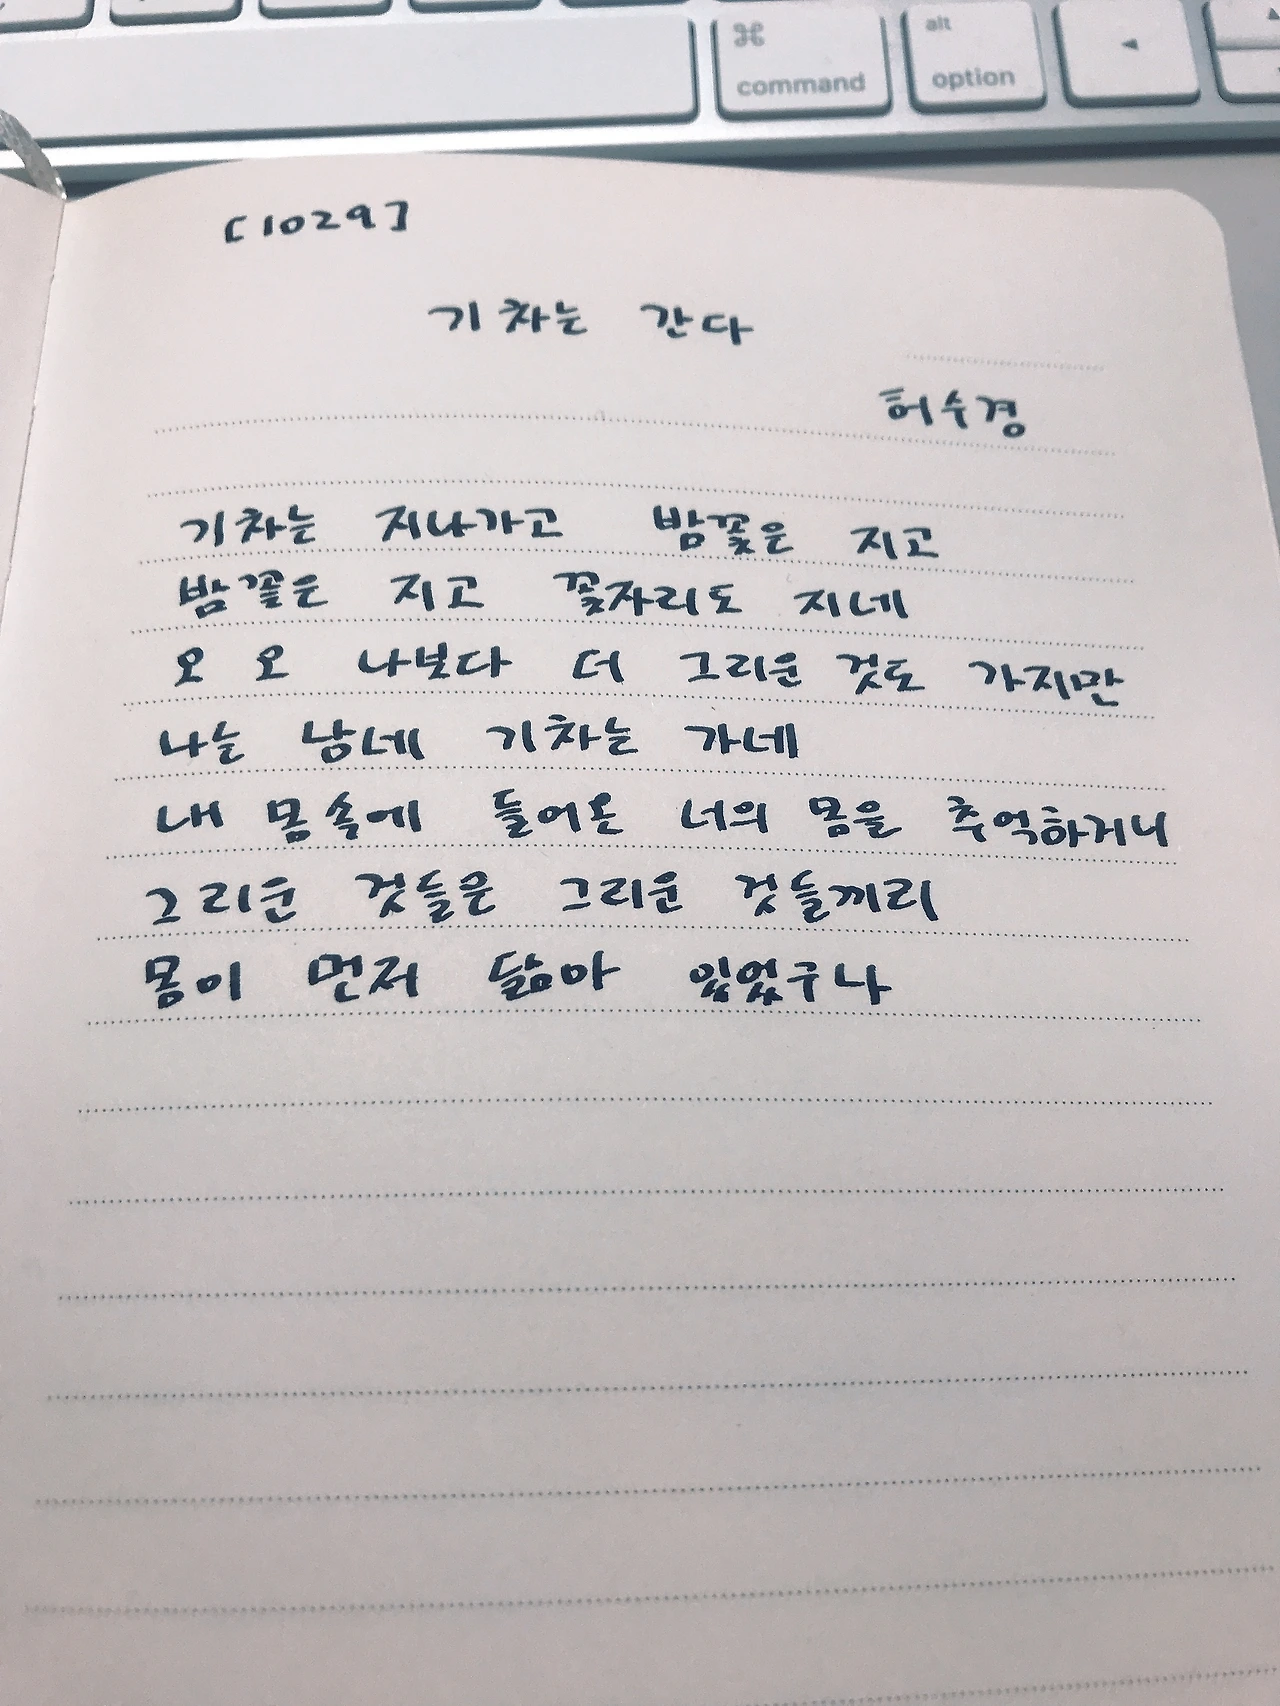 ⌘ alt
command option ◄
[1029]
기차는 간다
허수경
기차는 지나가고 밤꽃은 지고
밤꽃은 지고 꽃자리도 지네
오 오 나보다 더 그리운 것도 가지만
나는 남네 기차는 가네
내 몸속에 들어온 너의 몸을 추억하거니
그리운 것들은 그리운 것들끼리
몸이 먼저 닮아 있었구나